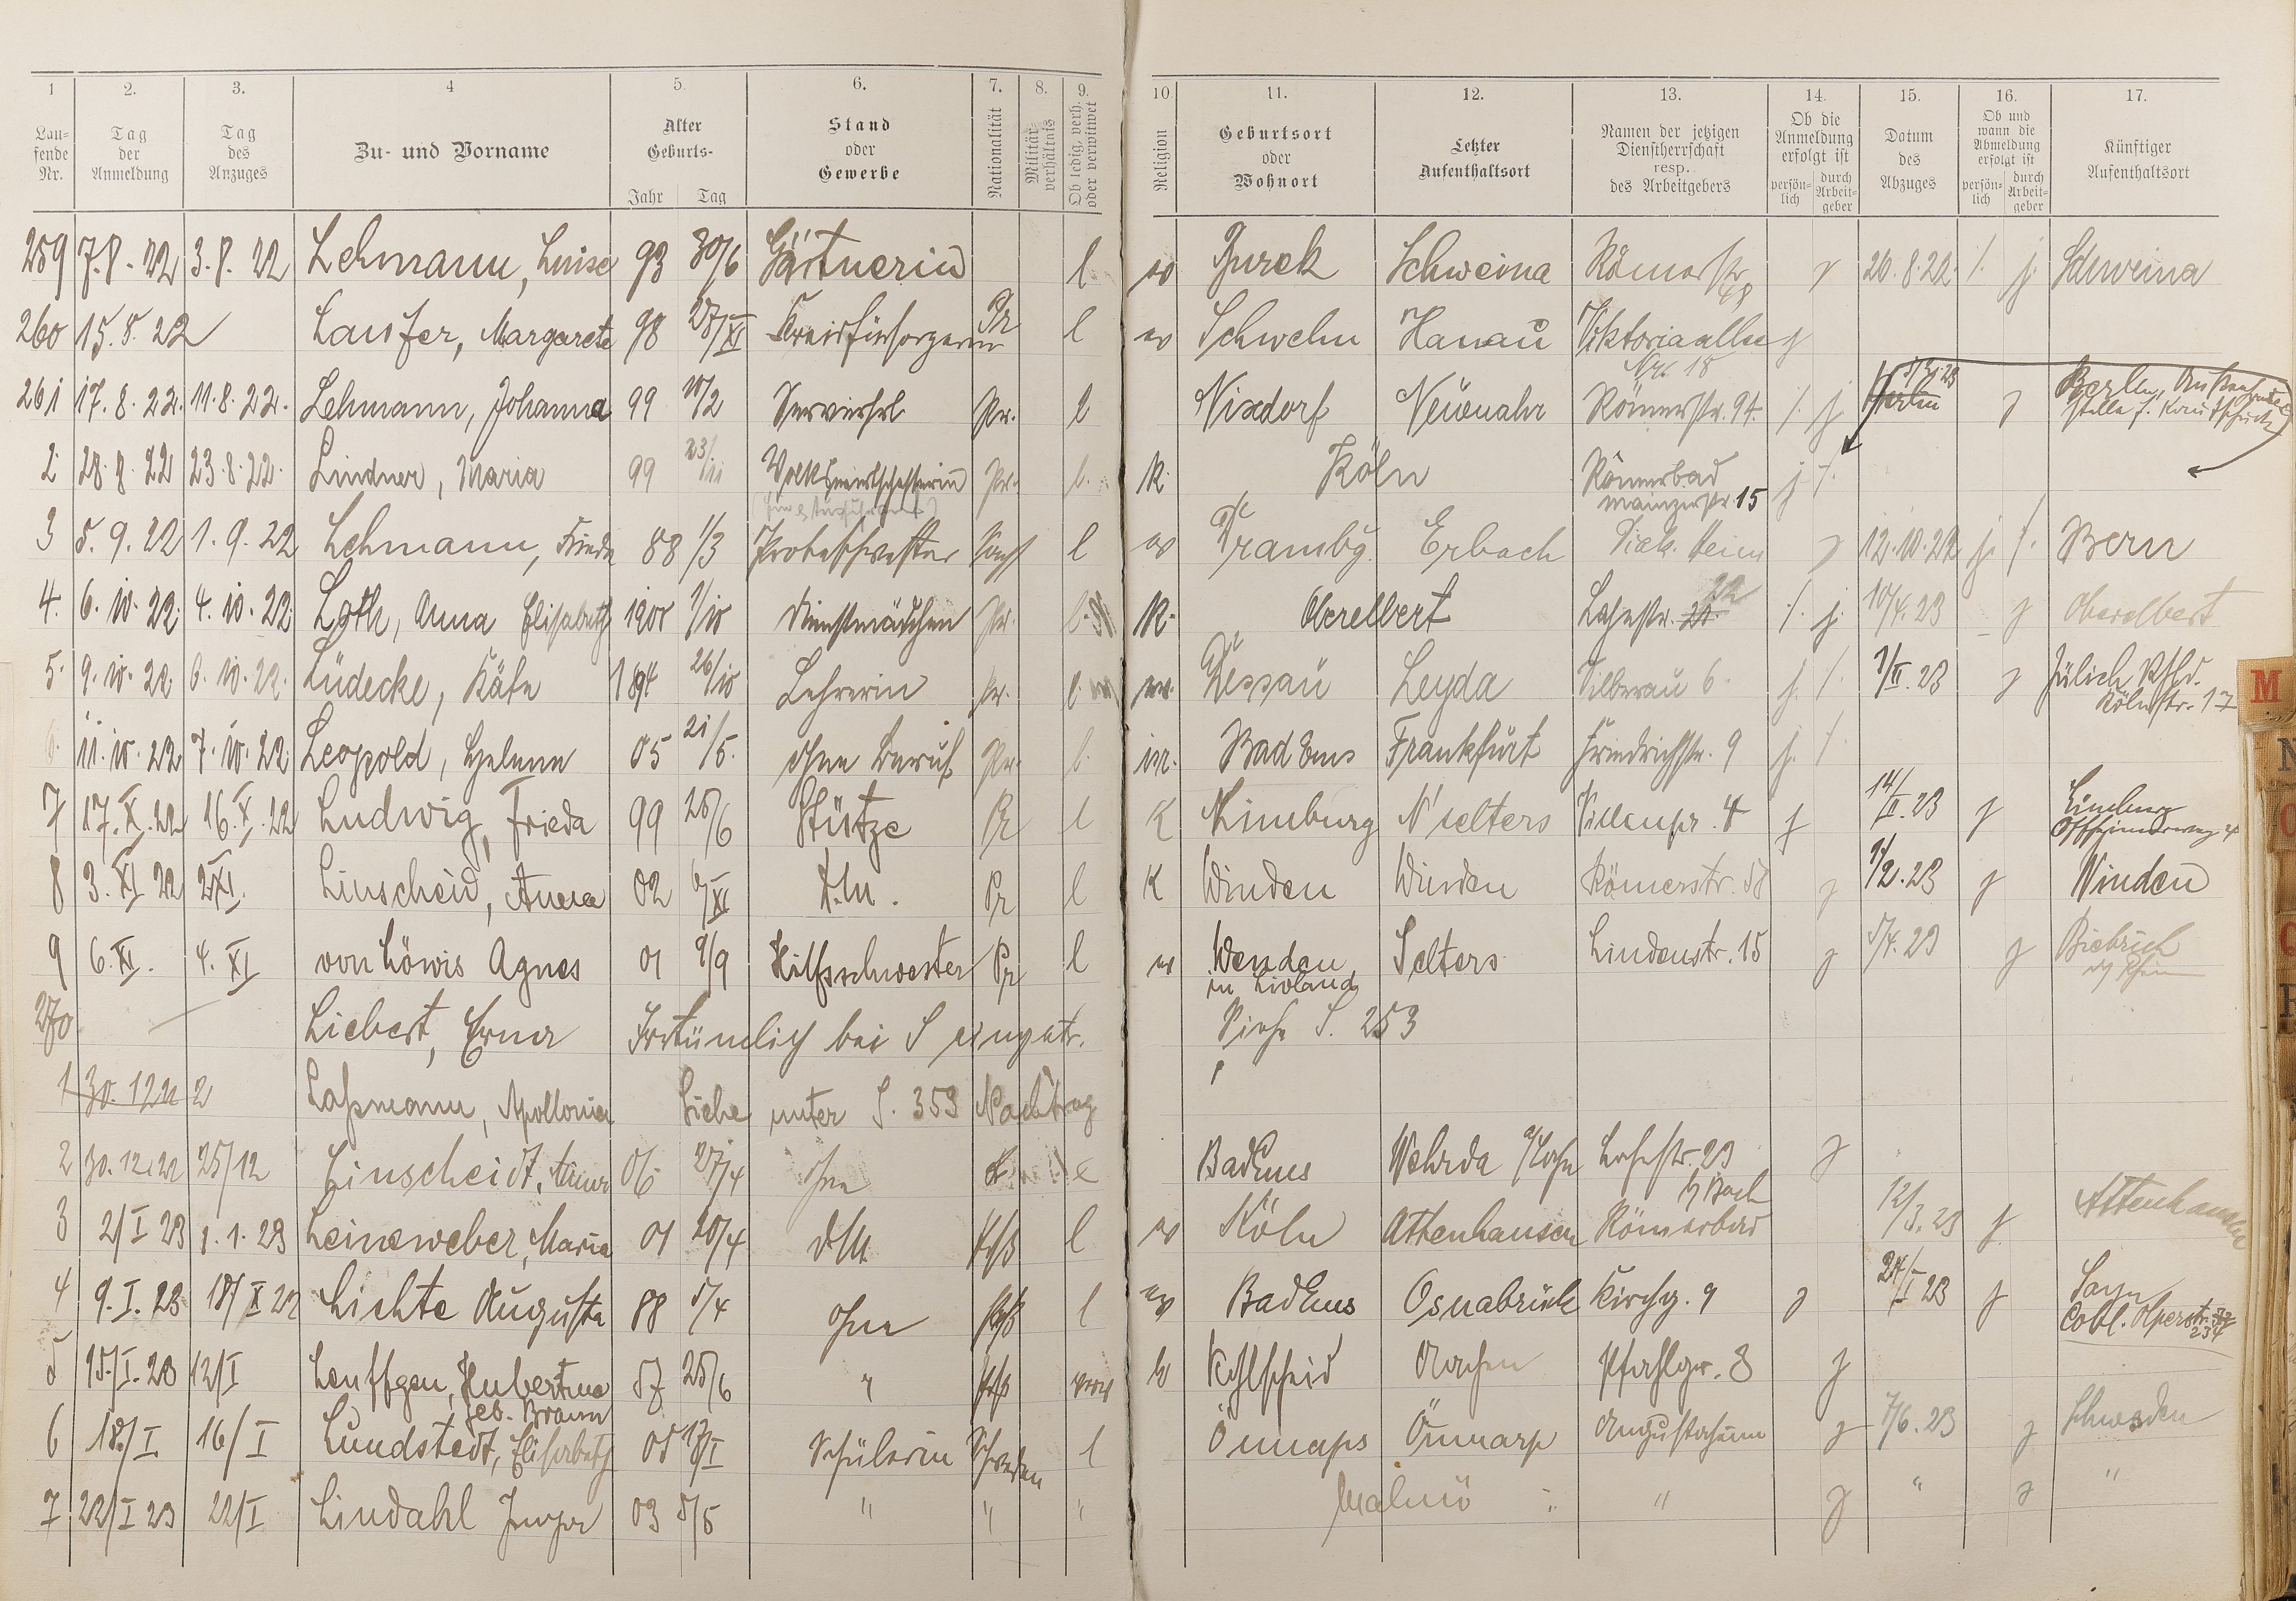 1 2. 3. 4 5. 6. 7. 8. 9. 10. 11. 12. 13. 14. 15. 16. 17.
Laufende Nr. Tag der Anmeldung Tag des Anzuges Zu- und Vorname Alter Geburts- Jahr Tag Stand oder Gewerbe Nationalität Militärverhältnis Ob ledig, verh. oder verwitwet Religion Geburtsort oder Wohnort Letzter Aufenthaltsort Namen der jetzigen Dienstherrschaft resp. des Arbeitgebers Ob die Anmeldung erfolgt ist persönlich durch Arbeitgeber Datum des Abzuges Ob und wann die Abmeldung erfolgt ist persönlich durch Arbeitgeber Künftiger Aufenthaltsort
259 7.8.22 3.8.22 Lehmann, Luise 93 30/6 Gärtnerin l Schweina Römerstr. 20.8.22 /. j. Schweina
260 15.8.22 Laufer, Margarete 98 27/XI Kreisfürsorgerin Pr l ev Schwelm Hanau Viktoriaallee
Nr. 18
261 17.8.22. 11.8.22. Lehmann, Johanna 99 Servierfrl Pr. l Nixdorf Neuenahr Römerstr. 94. /. j Berlin
2 28.8.22 23.8.22. Lindner, Maria 99 23/ Volkswirtschafterin Pr. l. K. Köln Römerbad j /.
Mainzerstr. 15
3 5.9.22 1.9.22 Lehmann, Frieda 88 1/3 Probeschwester l ev Erbach Diak. Heim 12.10.22 j. /. Bern
4. 6.10.22. 4.10.22. Loth, Anna Elisabeth 1901 1/10 Dienstmädchen Pr. l. K. Oberelbert Lahnstr. 21. 22 /. j. 10/4.23 Oberelbert
5. 9.10.22. 6.10.22. Lüdecke, Käte 1894 26/10 Lehrerin Pr. l. Dessau Leyda Silberau 6. j. /. 1/II.23 Jülich Rhld.
Kölnstr. 17
6. 11.10.22 7.10.22. Leopold, Helene 05 21/5. ohne Beruf Pr. l. isr. Bad Ems Frankfurt Friedrichstr. 9 j. /.
7 17.X.22 16.X.22 Ludwig, Frieda 99 25/6 Stütze Pr l K Limburg N'selters Villenpr. 4 14/II.23 Limburg
Offheimerweg 4
8 3.XI 22 2.XI. Linscheid, Anna 02 6/XI D.M. Pr l K Winden Winden Römerstr. 58 1/2.23 Winden
9 6.XI. 4.XI von Löwis Agnes 01 9/9 Hilfsschwester Pr l ev Wenden, Selters Lindenstr. 15 5/4.23 Biebrich
in Livland
270 Liebert, Erna Irrtümlich bei S eingetr. Siehe S. 253
1 30.12.22 Laßmann, Apollonia Siehe unter S. 353 Nachtrag
2 30.12.22 25/12 Linscheidt, Anna 06 27/4 ohne Bad Ems Wehrda a/Lahn Lahnstr. 23
3 2/I 23 1.1.23 Leineweber, Maria 01 20/4 d.M. Prß l ev Köln Attenhausen Römerbad b/ Bach 12/3.23 Attenhausen
4 9.I.23 18/X 22 Lichte Augusta 88 5/4 ohne Prß l ev Bad Ems Osnabrück Kirchg. 9 24/I 23 Sayn
Cobl.-Olperstr.
234
5 15/I.23 12/I Leuffgen, Hubertine 57 25/6 " Prß Kohlscheid Aachen Pfahlgr. 8
geb. Braun
6 18/I 16/I Lundstedt, Elisabeth 05 Schülerin Schweden l Önnarp Önnarp Augustaheim 7/6.23 Schweden
7 22/I 23 22/I Lindahl 03 5/5 " " " Malmö " " " "
M